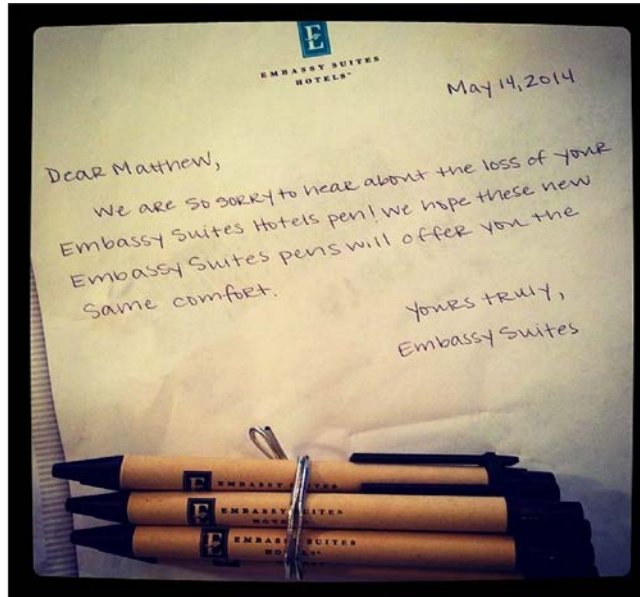 E
EMBASSY SUITES
HOTELS
May 14, 2014
Dear Matthew,
We are so sorry to hear about the loss of your
Embassy Suites Hotels pen! We hope these new
Embassy Suites pens will offer you the
same comfort.
Yours truly,
Embassy Suites
E EMBASSY SUITES
E EMBASSY SUITES
HOTELS
E EMBASSY SUITES
HOTELS